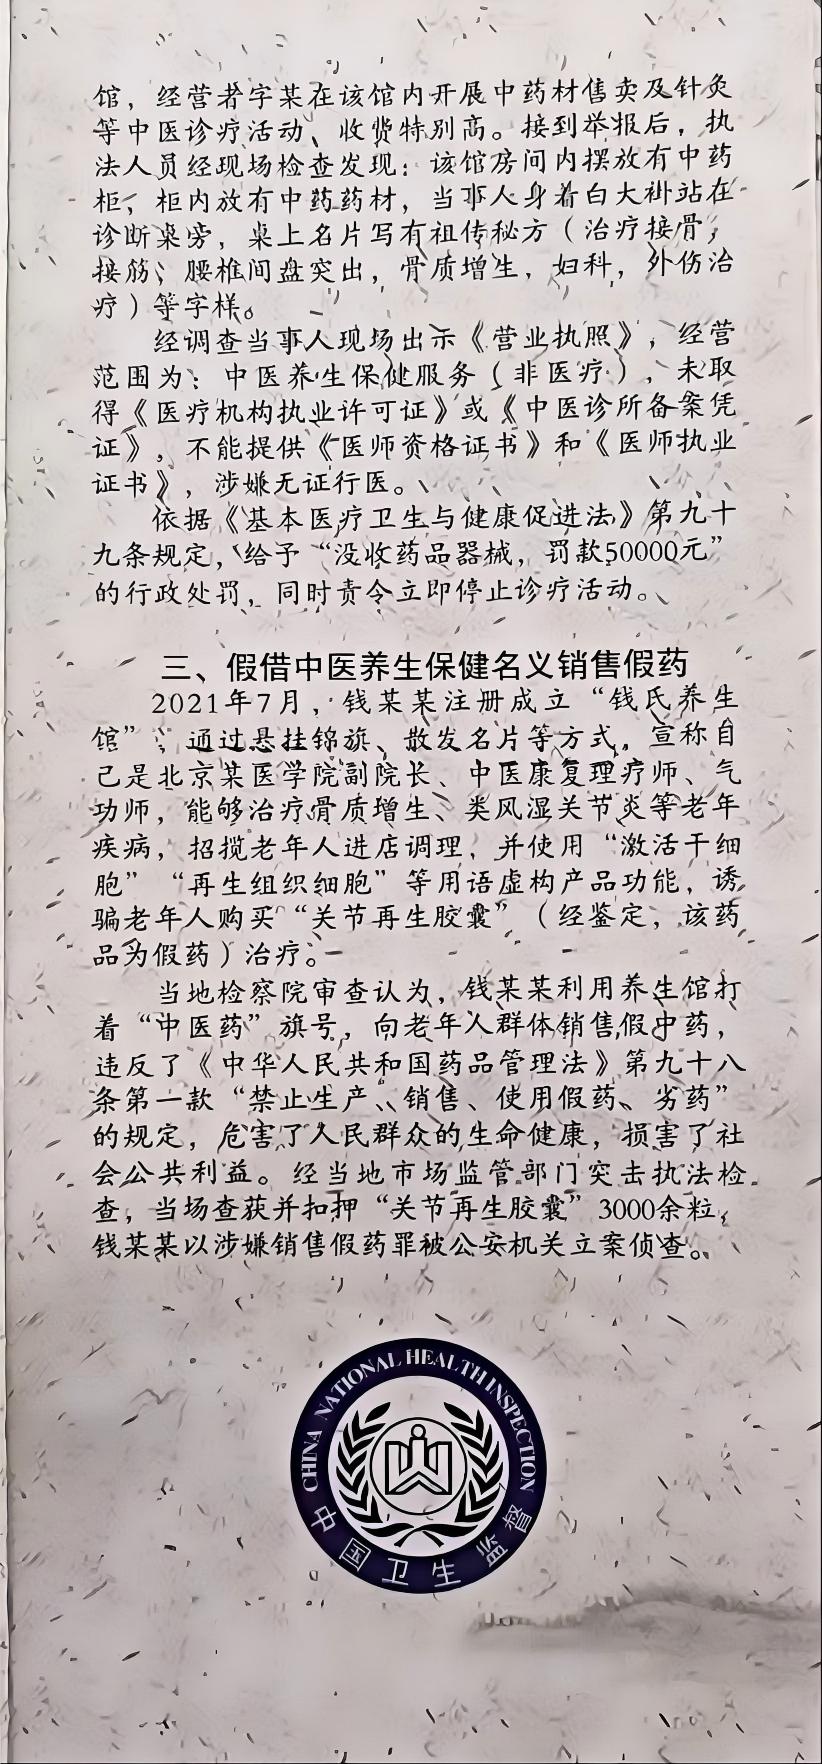 馆，经营者字某在该馆内开展中药材售卖及针灸
等中医诊疗活动、收费特别高。接到举报后，执
法人员经现场检查发现：该馆房间内摆放有中药
柜，柜内放有中药药材，当事人身着白大褂站在
诊断桌旁，桌上名片写有祖传秘方（治疗接骨，
接筋，腰椎间盘突出，骨质增生，妇科，外伤治
疗）等字样。
经调查当事人现场出示《营业执照》，经营
范围为：中医养生保健服务（非医疗），未取
得《医疗机构执业许可证》或《中医诊所备案凭
证》，不能提供《医师资格证书》和《医师执业
证书》，涉嫌无证行医。
依据《基本医疗卫生与健康促进法》第九十
九条规定，给予“没收药品器械，罚款50000元”
的行政处罚，同时责令立即停止诊疗活动。
三、假借中医养生保健名义销售假药
2021年7月，钱某某注册成立“钱氏养生
馆”，通过悬挂锦旗、散发名片等方式，宣称自
己是北京某医学院副院长、中医康复理疗师、气
功师，能够治疗骨质增生、类风湿关节炎等老年
疾病，招揽老年人进店调理，并使用“激活干细
胞”“再生组织细胞”等用语虚构产品功能，诱
骗老年人购买“关节再生胶囊”（经鉴定，该药
品为假药）治疗。
当地检察院审查认为，钱某某利用养生馆打
着“中医药”旗号，向老年人群体销售假中药，
违反了《中华人民共和国药品管理法》第九十八
条第一款“禁止生产、销售、使用假药、劣药”
的规定，危害了人民群众的生命健康，损害了社
会公共利益。经当地市场监管部门突击执法检
查，当场查获并扣押“关节再生胶囊”3000余粒，
钱某某以涉嫌销售假药罪被公安机关立案侦查。
CHINA NATIONAL HEALTH INSPECTION
中国卫生监督